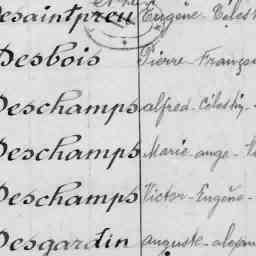 Desaintpreu Eugène - Céles
Desbois Pierre - Franço
Deschamps alfred - Célesti -
Deschamps Marie - ange -
Deschamps Victor - Eugène -
Desgardin auguste - alexan